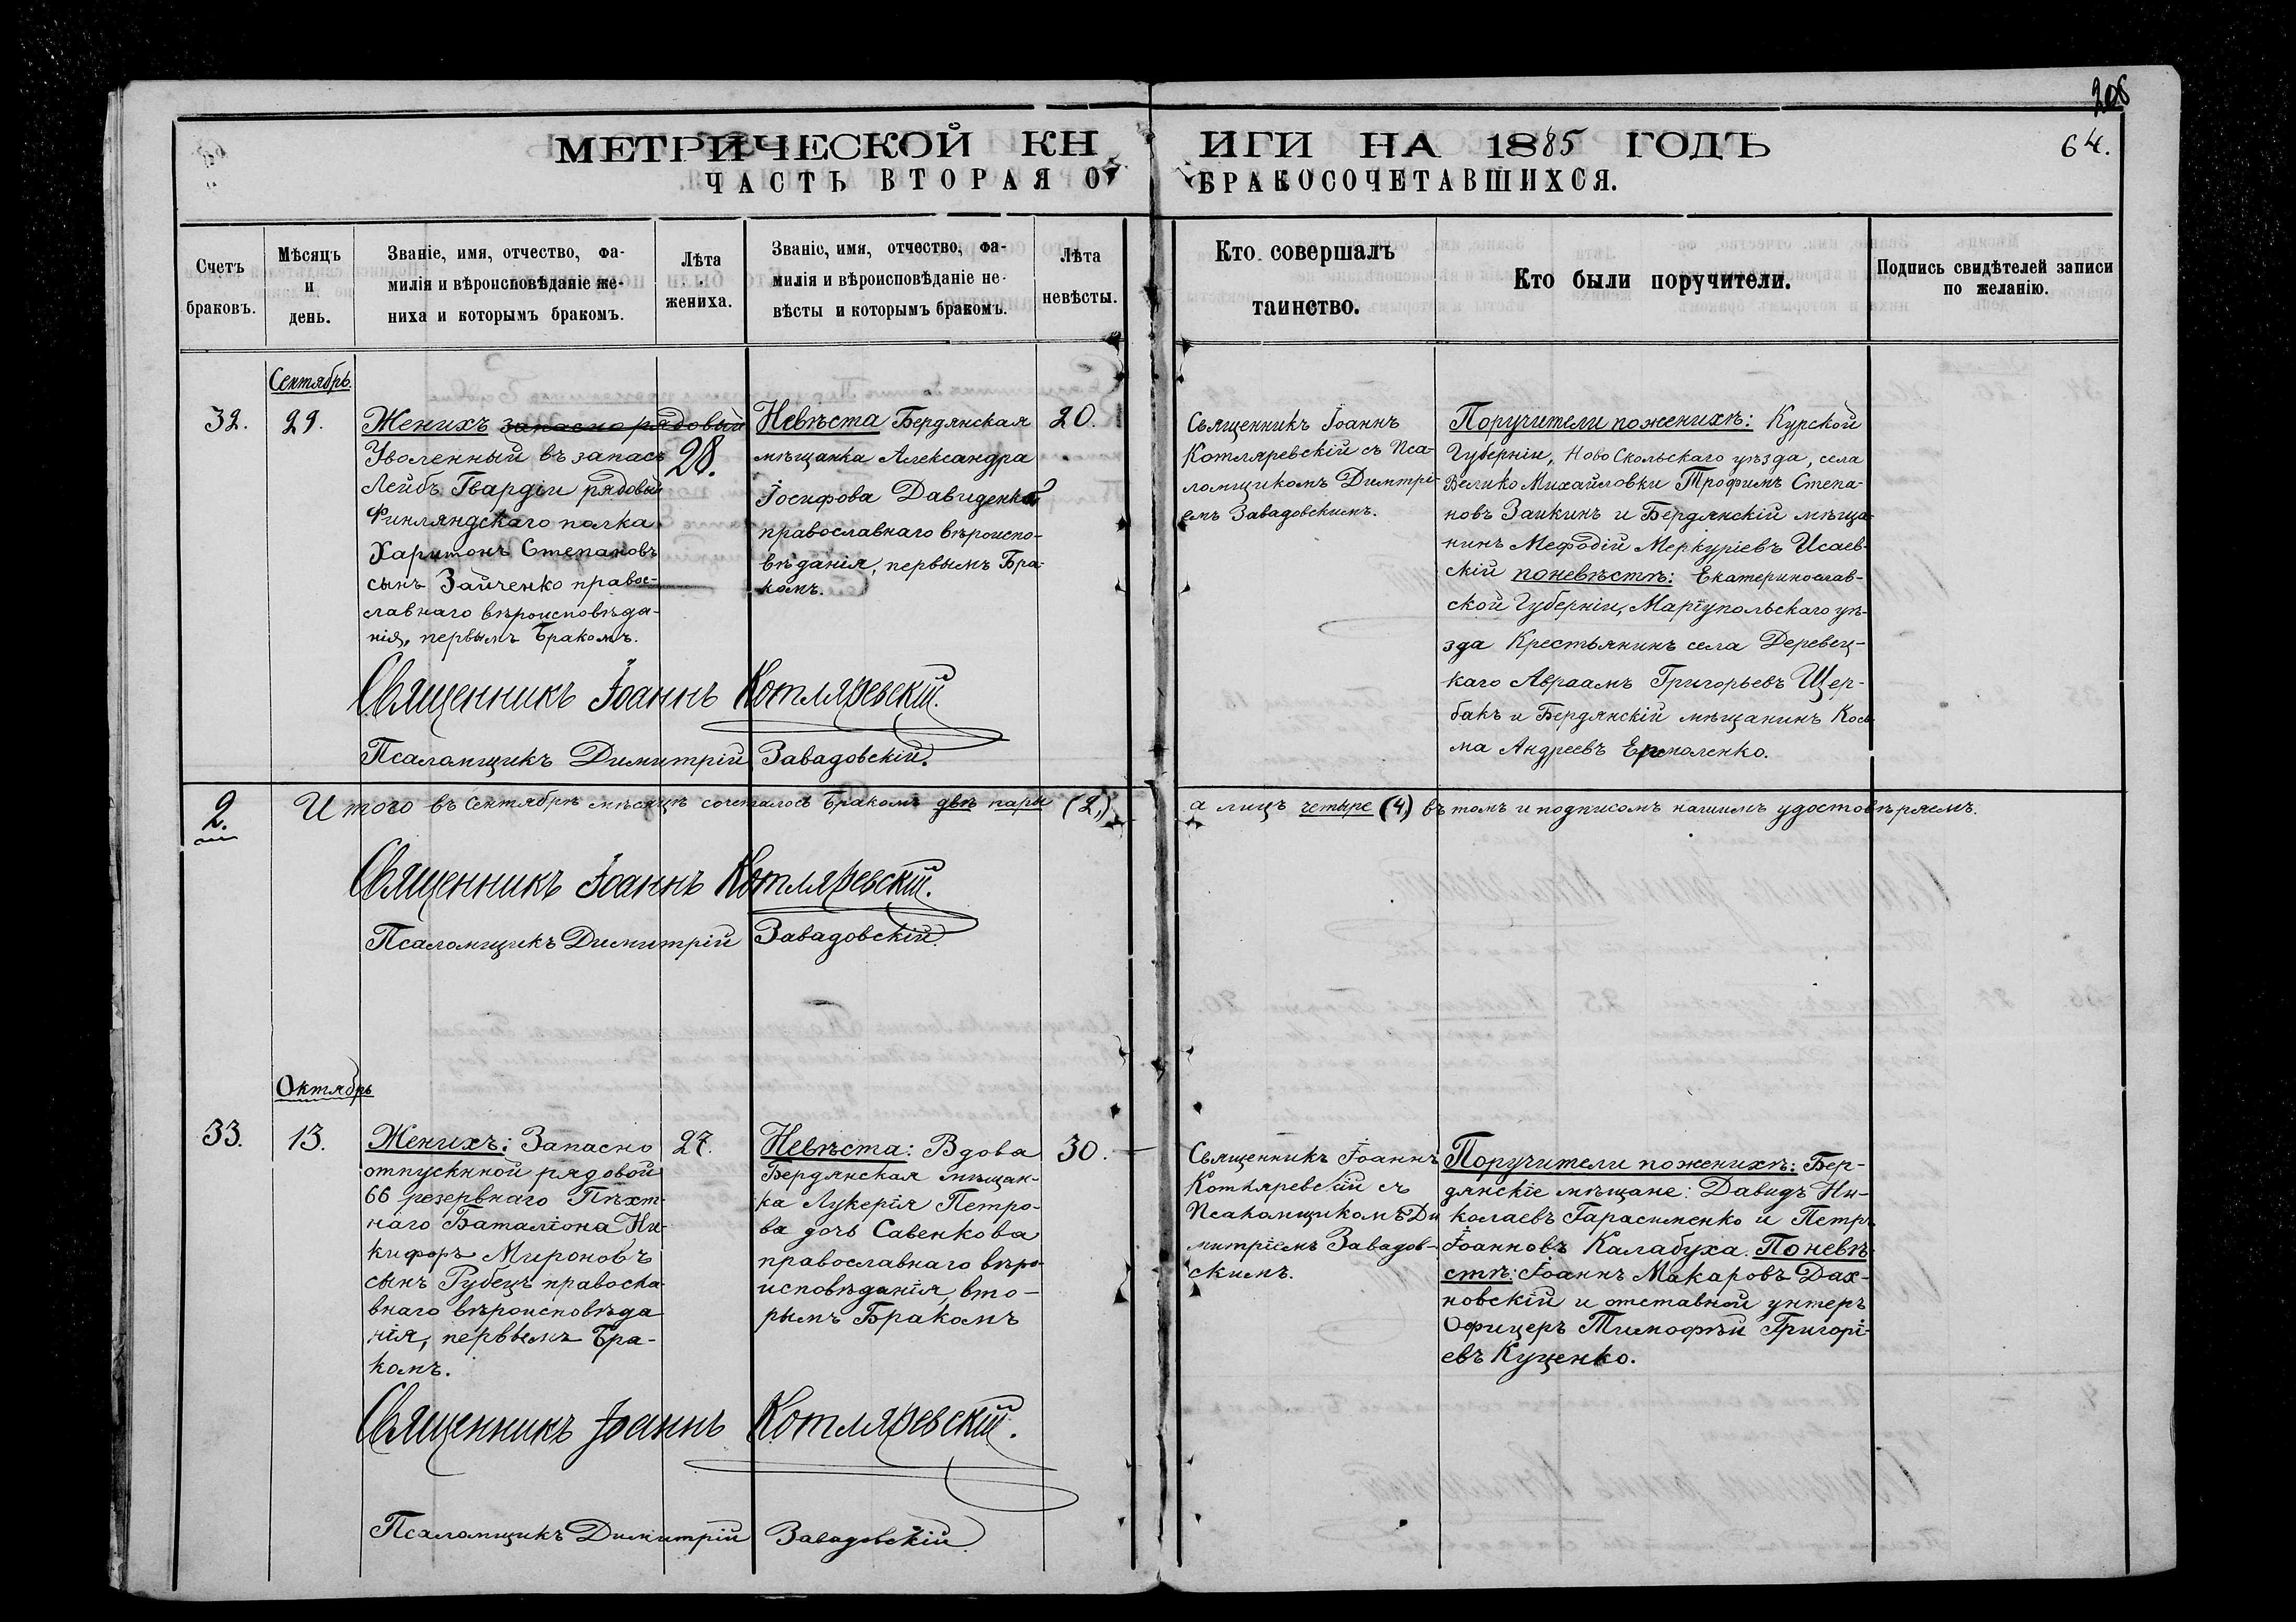 208
МЕТРИЧЕСКОЙ КНИГИ НА 1885 ГОДЪ
64.
ЧАСТЬ ВТОРАЯ О БРАКОСОЧЕТАВШИХСЯ.
Счетъ
браковъ.
Мѣсяцъ
и
день.
Званіе, имя, отчество, фа-
милія и вѣроисповѣданіе же-
ниха и которымъ бракомъ.
Лѣта
жениха.
Званіе, имя, отчество, фа-
милія и вѣроисповѣданіе не-
вѣсты и которымъ бракомъ.
Лѣта
невѣсты.
Кто совершалъ
таинство.
Кто были поручители.
Подпись свидѣтелей записи
по желанію.
Сентябрь.
32.
29.
Женихъ запасно рядовый
Уволенный въ запасъ
Лейбъ Гвардіи рядовый
Финляндскаго полка
Харитонъ Степановъ
сынъ Зайченко правос-
славнаго вѣроисповѣда-
нія, первымъ Бракомъ.
28.
Невѣста Бердянская
мѣщанка Александра
Іосифова Давиденкова
православнаго вѣроиспо-
вѣданія, первымъ Бра-
комъ.
20.
Священникъ Іоаннъ
Котляревскій съ Пса-
ломщикомъ Димитрі-
емъ Завадовскимъ.
Поручители по женихѣ: Курской
Губерніи, Ново Скольскаго уѣзда, села
Велико Михайловки Трофимъ Степа-
новъ Заикинъ и Бердянскій мѣща-
нинъ Мефодій Меркуріевъ Исаев-
скій по невѣстѣ: Екатеринослав-
ской Губерніи, Маріупольскаго уѣ-
зда Крестьянинъ села Деревец-
каго Авраамъ Григорьевъ Щер-
бакъ и Бердянскій мѣщанинъ Кось-
ма Андреевъ Ермоленко.
Священникъ Іоаннъ Котляревскій.
Псаломщикъ Димитрій Завадовскій.
2.
Итого въ Сентябрѣ мѣсяцѣ сочеталось Бракомъ двѣ пары (2,) а лицъ четыре (4) въ томъ и подписомъ нашимъ удостовѣряемъ.
Священникъ Іоаннъ Котляревскій.
Псаломщикъ Димитрій Завадовскій.
Октябрь
33.
13.
Женихъ: Запасно
отпускнной рядовой
66 резервнаго Пѣхт-
наго Баталіона Ни-
кифоръ Мироновъ
сынъ Рубецъ правосла-
внаго вѣроисповѣда-
нія, первымъ Бра-
комъ.
27.
Невѣста: Вдова
Бердянская мѣщан-
ка Лукерія Петро-
ва дочь Савенкова
православнаго вѣро-
исповѣданія, вто-
рымъ Бракомъ
30.
Священникъ Іоаннъ
Котляревскій съ
Псаломщикомъ Ди
митріемъ Завадов-
скимъ.
Поручители по женихѣ: Бер-
дянскіе мѣщане: Давидъ Ни-
колаевъ Гарасименко и Петръ
Іоанновъ Калабуха. По невѣ-
стѣ: Іоаннъ Макаровъ Дах-
новскій и отставной унтеръ
Офицеръ Тимофѣй Григорі-
евъ Куценко.
Священникъ Іоаннъ Котляревскій.
Псаломщикъ Димитрій Завадовскій.